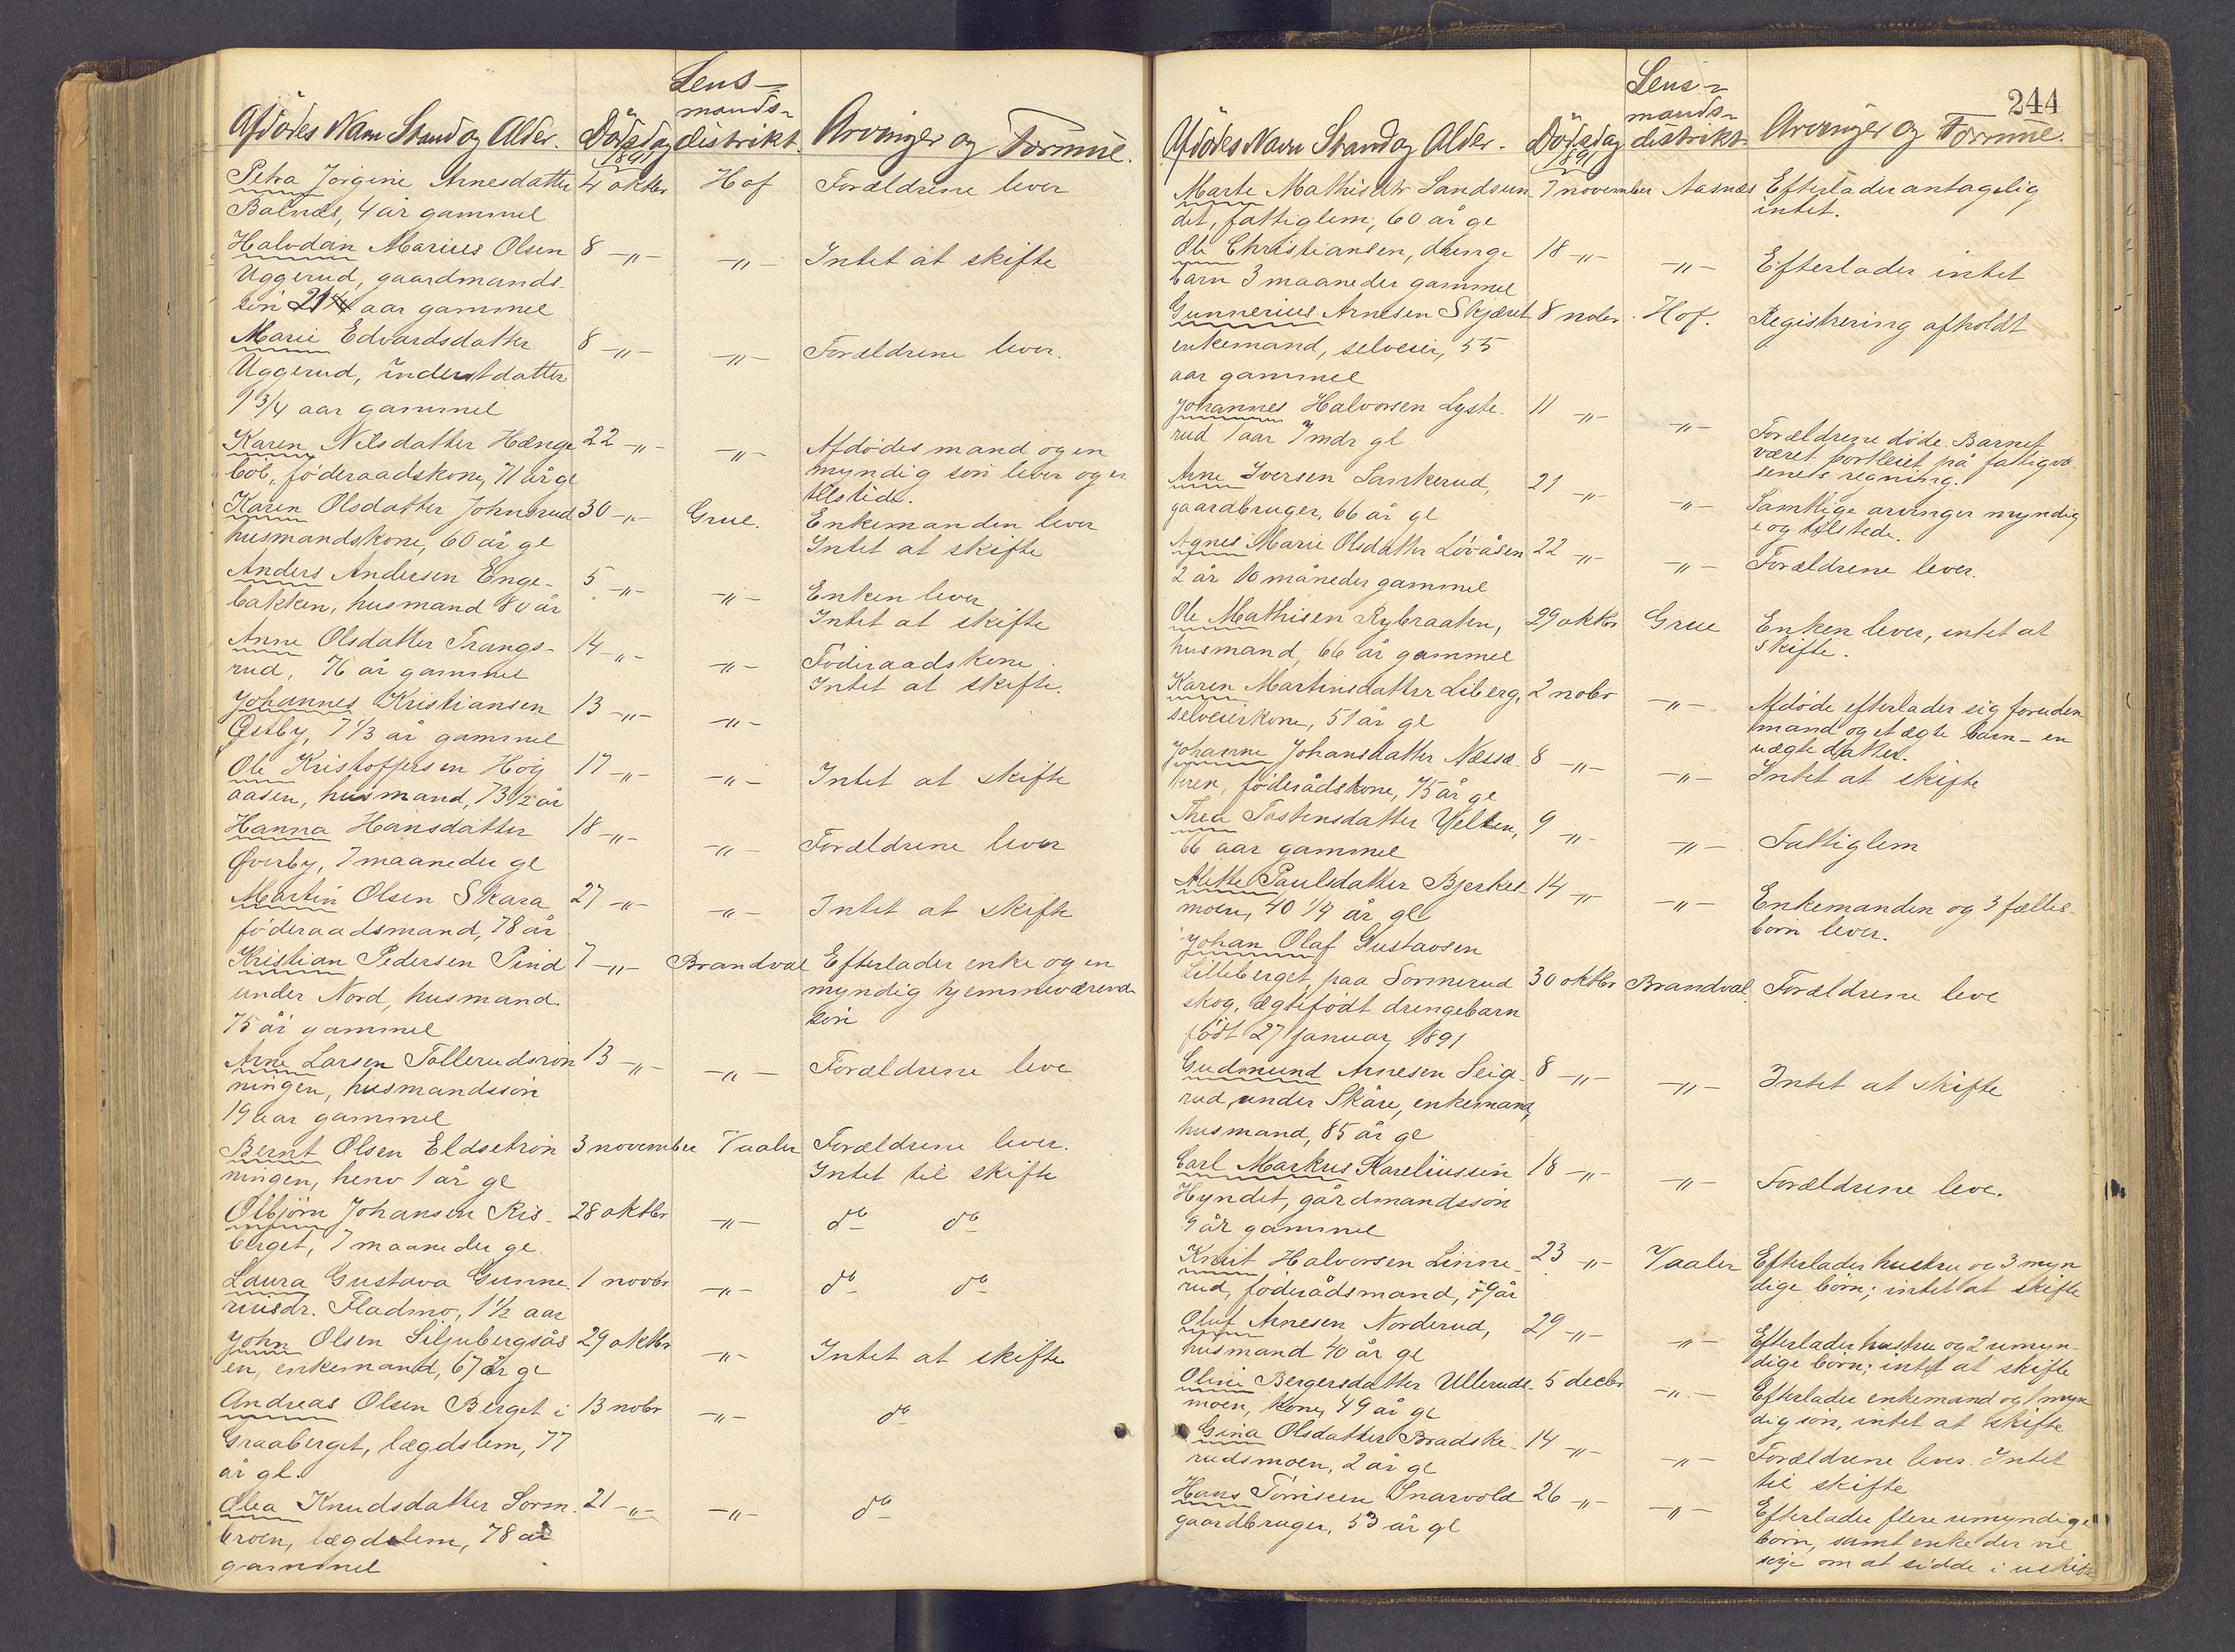 Afdødes Navn Stand og Alder. Dødsdag 1891 Lens-
mands-
distrikt. Arvinger og Formue.
Petra Jørgine Arnesdatter 4 oktbr Hof Forældrene lever
Balnæs, 4 år gammel
Halvdan Marius Olsen 8 -"- -"- Intet at skifte
Uggerud, gaardmands-
søn 21 aar gammel
Marie Edvardsdatter 8 -"- -"- Forældrene lever.
Uggerud, inderstdatter
1 3/4 aar gammel
Karen Nilsdatter Hænge 22 -"- -"- Afdødes mand og en
böl, föderaadskone, 71 år gl myndig søn lever og er
tilstede.
Karen Olsdatter Johnsrud 30 -"- Grue. Enkemanden lever
husmandskone, 60 år gl Intet at skifte
Anders Andersen Enge- 5 -"- -"- Enken lever
bakken, husmand 80 år Intet at skifte
Anne Olsdatter Trangs- 14 -"- -"- Föderaadskone
rud, 76 år gammel Intet at skifte.
Johannes Kristiansen 13 -"- -"-
Østby, 7 1/3 år gammel
Ole Kristoffersen Høg 17 -"- -"- Intet at skifte
aasen, husmand, 73 1/2 år
Hanna Hansdatter 18 -"- -"- Forældrene lever
Øverby, 7 maaneder gl
Martin Olsen Skara 27 -"- -"- Intet at skifte
föderaadsmand, 78 år
Kristian Pedersen Pind 7 -"- Brandval Efterlader enke og en
under Nord, husmand. myndig hjemmeværende
75 år gammel søn
Arne Larsen Tollerudsrön 13 -"- -"- Forældrene leve
ningen, husmandssön
19 aar gammel
Bernt Olsen Eldsetrön 3 november Vaaler Forældrene lever.
ningen, henv 1 år gl Intet til skifte
Olbjörn Johansen Ris- 28 oktbr -"- do do
berget, 7 maaneder gl.
Laura Gustava Gunne 1 novbr -"- do do
riusdr. Fladmo, 1 1/2 aar
John Olsen Siljubergsås 29 oktbr -"- Intet at skifte
en, enkemand, 67 år gl
Andreas Olsen Berget i 13 nobr -"- do
Graaberget, lægdslem, 77
år gl.
Olea Knudsdatter Sorm 21 -"- -"- do
broen, lægdslem, 78 år
gammel
244
Afdødes Navn Stand og Alder. Dødsdag 1891 Lens-
mands-
distrikt. Arvinger og Formue.
Marte Mathisdtr Sandsun 7 november Aasnæs Efterlader antagelig
det, fattiglem, 60 år gl intet.
Ole Christiansen, drenge 18 -"- -"- Efterlader intet
barn 3 maaneder gammel
Gunnerius Arnesen Skjæret 8 nobr. Hof. Registrering afholdt
enkemand, selveier, 55
aar gammel
Johannes Halvorsen Lyste- 11 -"- -"- Forældrene døde. Barnet
rud 1 aar 7 mdr gl været bortleiet på fattigvæ
senets regning.
Arne Iversen Sankerud, 21 -"- -"- Samtlige arvinger myndig
gaardbruger, 66 år gl e og tilstede.
Agnes Marie Olsdatter Lövåsen 22 -"- -"- Forældrene lever.
2 år 10 måneder gammel
Ole Mathisen Rybraaten, 29 oktbr Grue Enken lever, intet at
husmand, 66 år gammel skifte.
Karen Martinsdatter Liberg, 2 nobr -"- Afdøde efterlader sig foruden
selveierkone, 51 år gl mand og et ægte barn - en
uægte datter.
Johanne Johansdatter Næssæ- 8 -"- -"- Intet at skifte
teren, föderådskone, 75 år gl
Thea Tostensdatter Velten, 9 -"- -"- Fattiglem
66 aar gammel
Alette Paulsdatter Bjerkes 14 -"- -"- Enkemanden og 3 fælles-
moen, 40 1/4 år gl börn lever.
Johan Olaf Gustavsen
Lilleberget, paa Sormerud 30 oktbr Brandval. Forældrene leve
skog, ægtefødt drengebarn
født 27 januar 1891
Gudmund Arnesen Seig- 8 -"- -"- Intet at skifte
rud, under Skåre, enkemand,
husmand, 85 år gl
Carl Markus Kareliussen 18 -"- -"- Forældrene leve.
Hyndet, gårdmandssön
9 år gammel
Knut Halvorsen Linne- 23 -"- Vaaler Efterlader hustru og 3 myn
rud, föderådsmand, 79 år dige börn; intet at skifte
Oluf Arnesen Norderud, 29 -"- -"- Efterlader hustru og 2 umyn-
husmand 40 år gl dige börn; intet at skifte
Oline Bergersdatter Ulleruds- 5 decbr -"- Efterlader enkemand og 1 myn
moen, kone, 49 år gl dig søn, intet at skifte
Gina Olsdatter Bradske- 14 -"- -"- Forældrene lever. Intet
rudsmoen, 2 år gl til skifte
Hans Törrisen Snarvold 26 -"- -"- Efterlader flere umyndige
gaardbruger, 53 år gl börn, samt enke der vil
söge om at sidde i uskifte